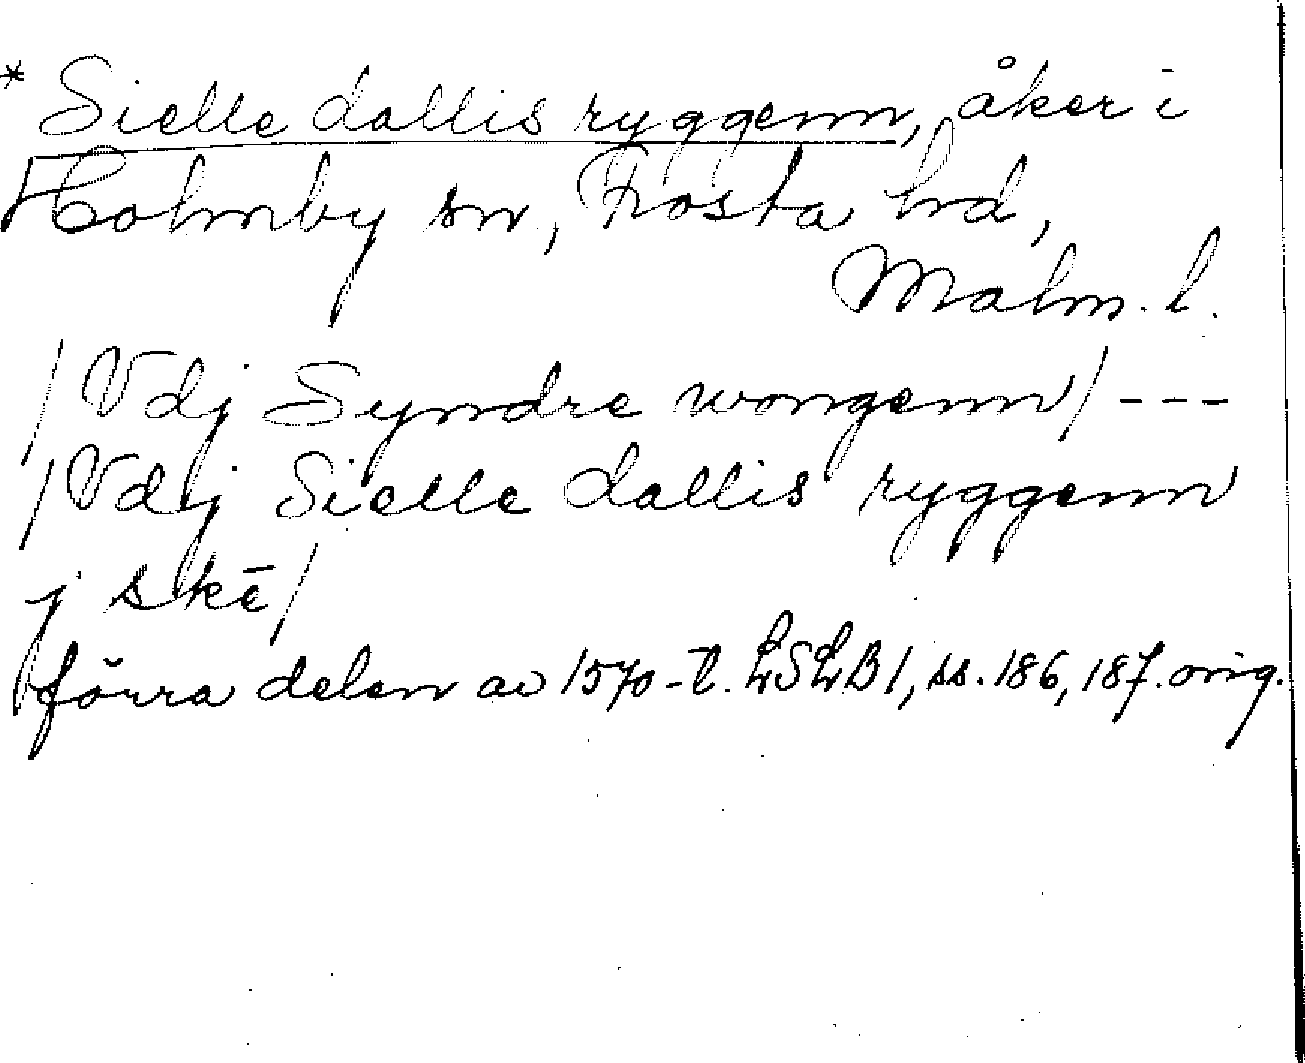 * Sielle dallis ryggenn, åker i
Holmby sn, Frosta hd,
Malm. l.
/Vdj Syndre wongenn/ ---
/Vdj Sielle dallis ryggenn
j skē/
förra delen av 1570-t. LSLB1, ss. 186, 187. orig.